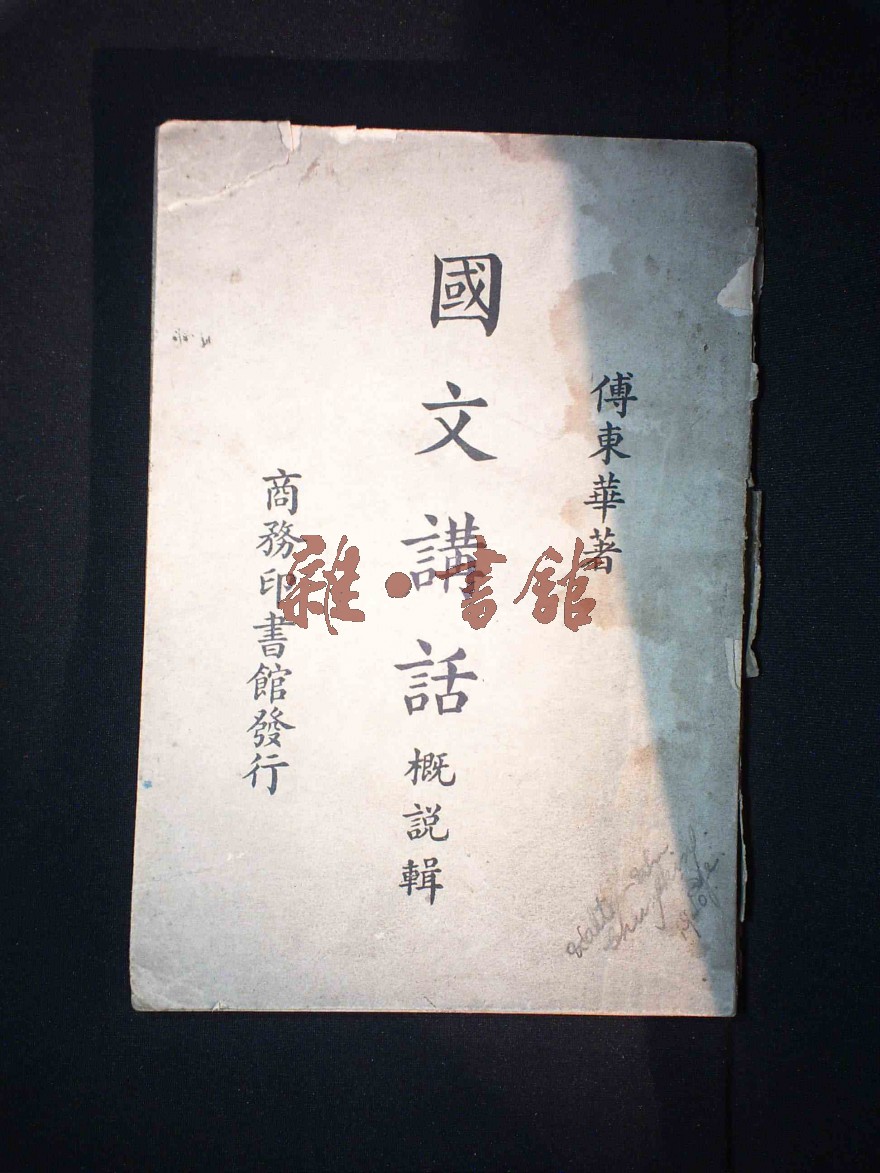 傅東華著
國文講話概説輯
商務印書館發行
雜·書館